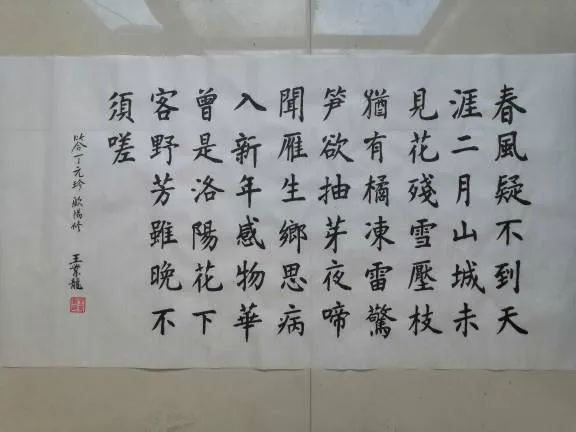 春風疑不到天
涯二月山城未
見花殘雪壓枝
猶有橘凍雷驚
笋欲抽芽夜啼
聞雁生鄉思病
入新年感物華
曾是洛陽花下
客野芳雖晚不
須嗟
答丁元珍 歐陽修 王業龍